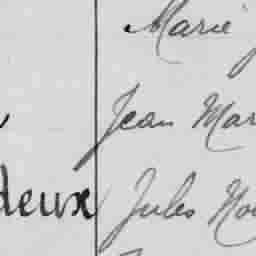 Marie
Jean Mar
deux Jules